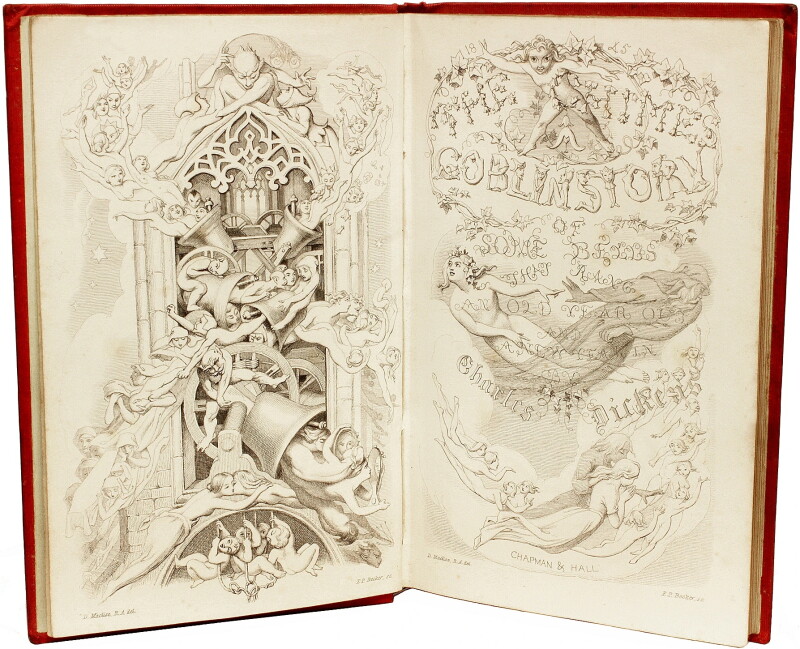 D. Maclise, R. A. del.
F. P. Becker, sc.
18 45
THE CHIMES
A
GOBLIN STORY
OF
SOME BELLS
THAT RANG
AN OLD YEAR OUT
AND
A NEW YEAR IN
BY
Charles Dickens
D. Maclise, R. A. del.
CHAPMAN & HALL
F. P. Becker, sc.